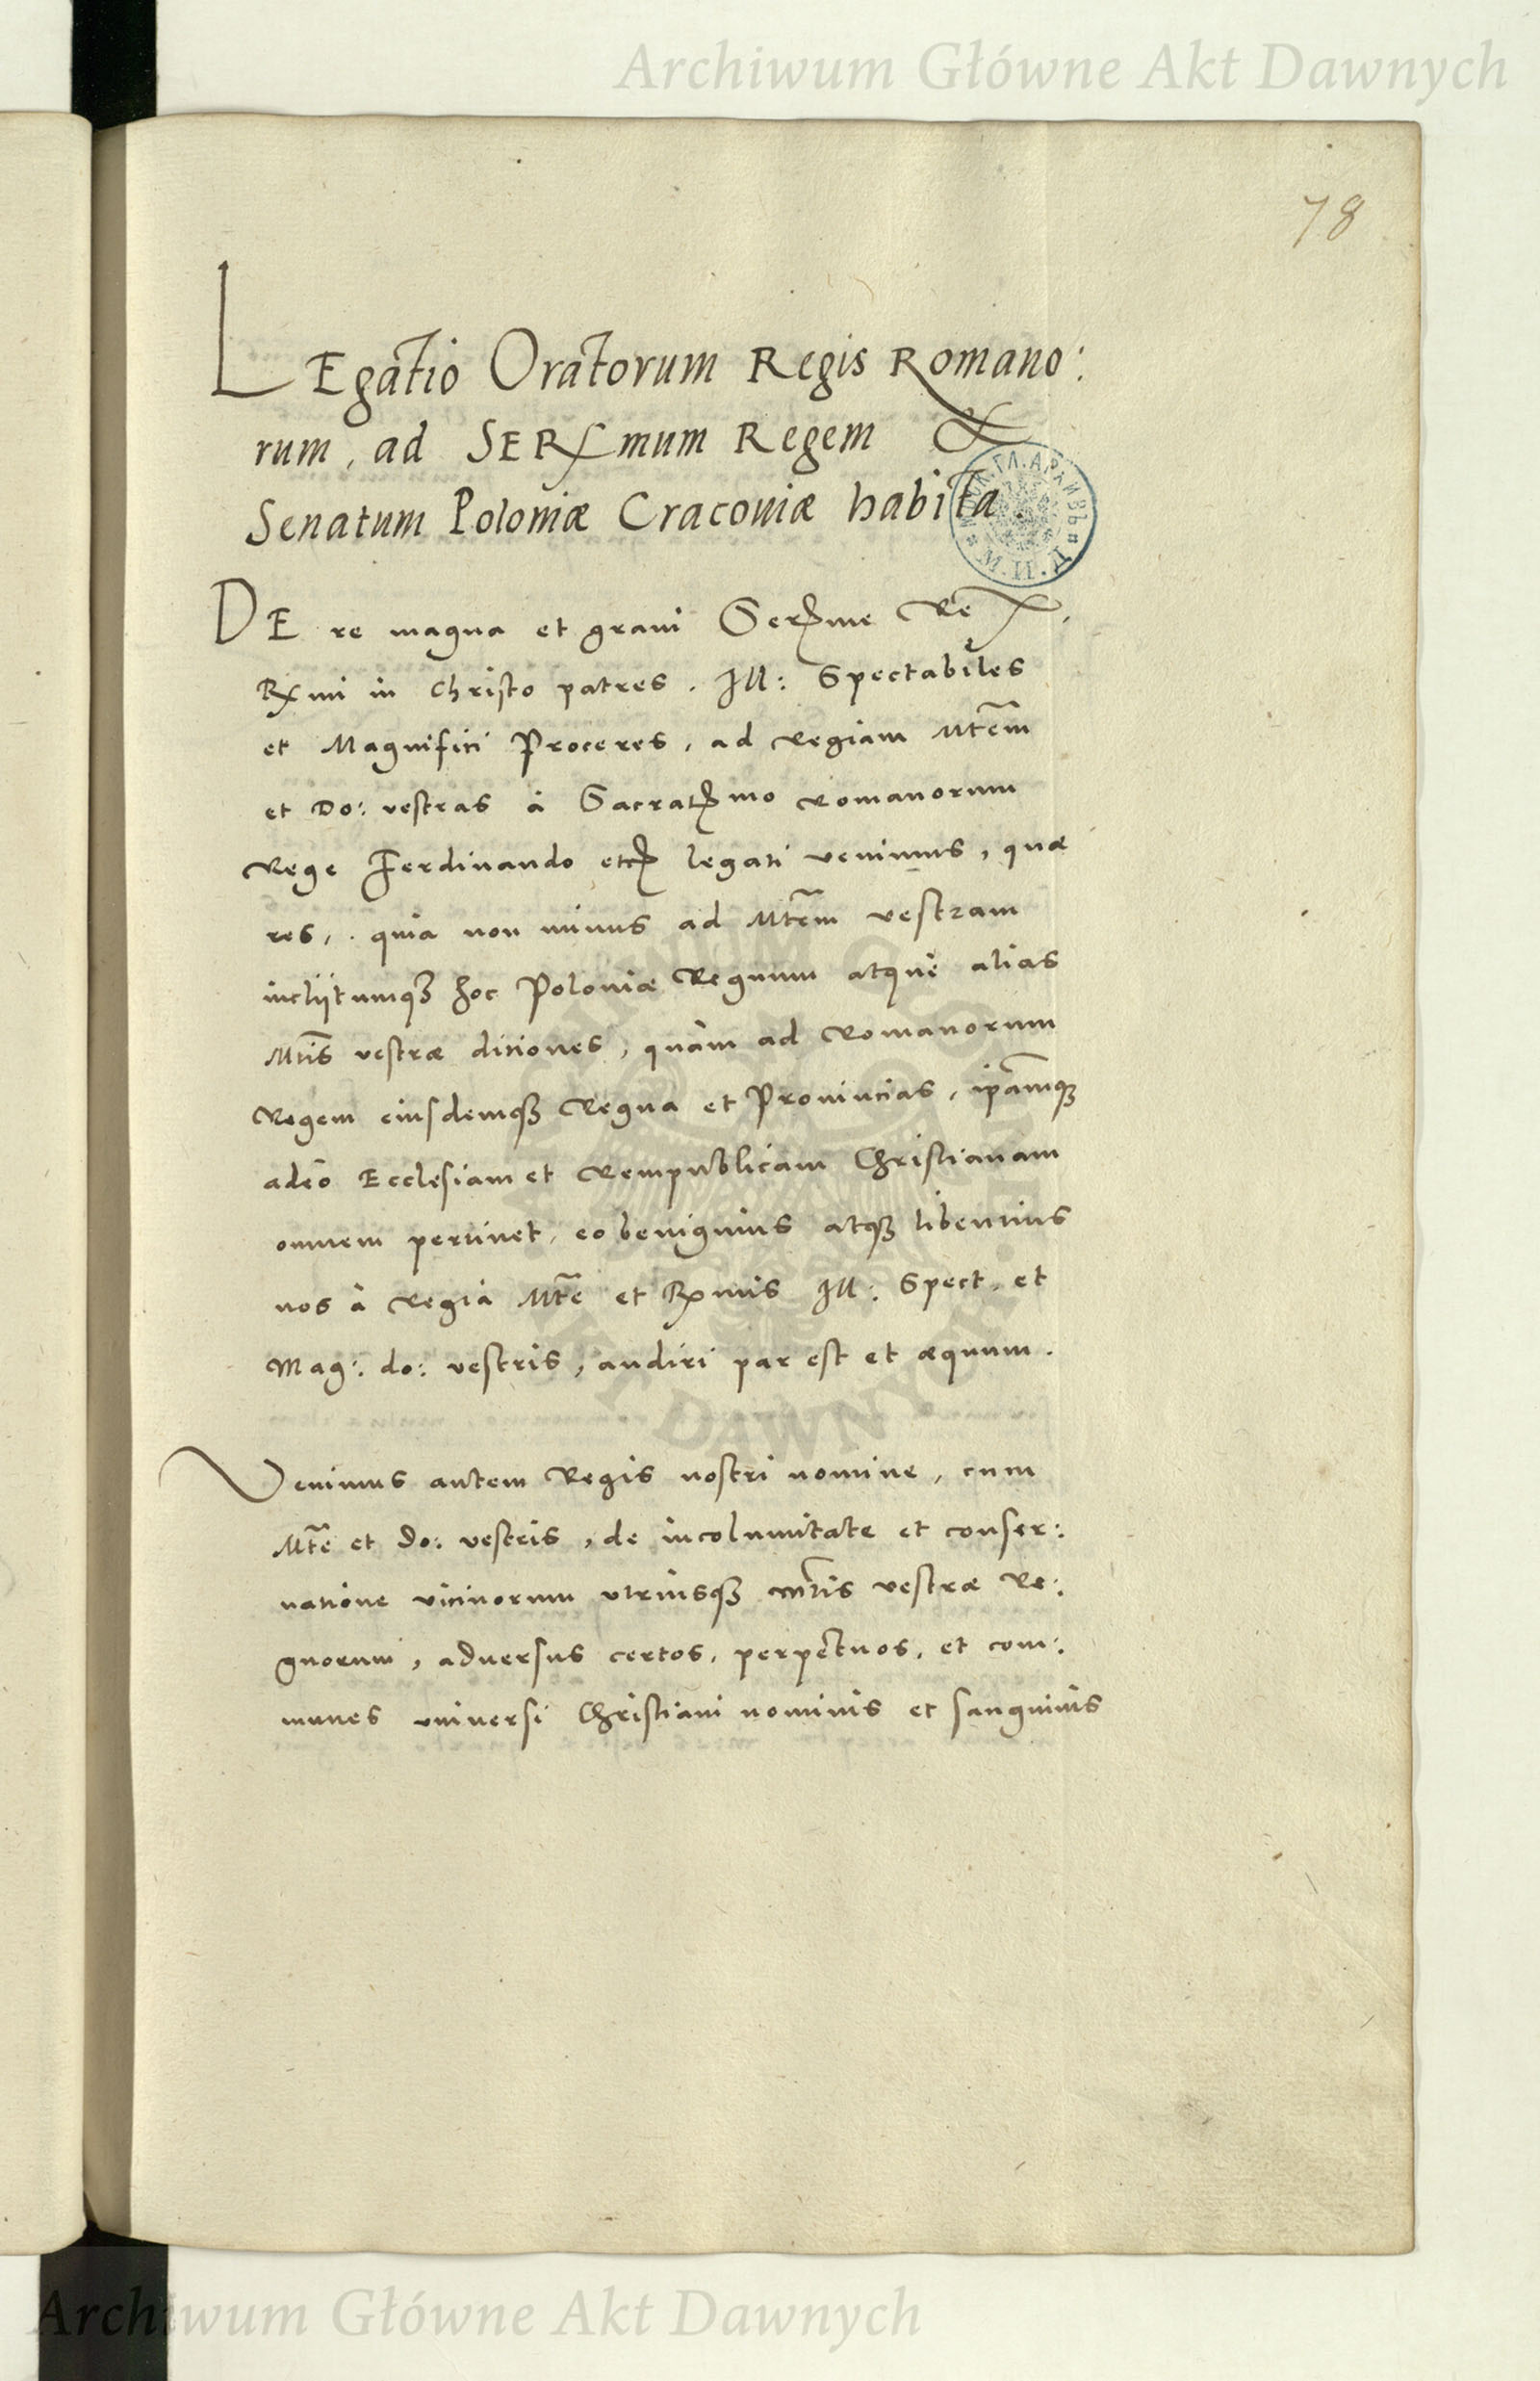 Archiwum Główne Akt Dawnych
78
LEgatio Oratorum Regis Romano:
rum, ad SERmum Regem &
Senatum Poloniæ Cracoviæ habita.
DE re magna et graui Serme Rex,
Rmi in Christo patres. Ill: Spectabiles
et Magnifici Proceres, ad Regiam Mtem
et Do: vestras à Sacratmo Romanorum
Rege Ferdinando etc legati venimus, quæ
res, . quia non minus ad Mtem vestram
inclijtumq hoc Poloniæ Regnum atque alias
Mtis vestræ ditiones, quàm ad Romanorum
Regem eiusdemq Regna et Prouincias, ipamq
adeò Ecclesiam et Rempublicam Christianam
omnem pertinet, eo benignius atq libentius
nos à Regia Mte et Rmis Ill: Spect. et
Mag: do: vestris, audiri par est et æquum.
Venimus autem Regis nostri nomine, cum
Mte et do: vestris, de incolumitate et conser:
uatione vicinorum vtriusq Mtis vestræ Re:
gnorum, aduersus certos, perpetuos, et com:
munes vniuersi Christiani nominis et sanguinis
Archiwum Główne Akt Dawnych